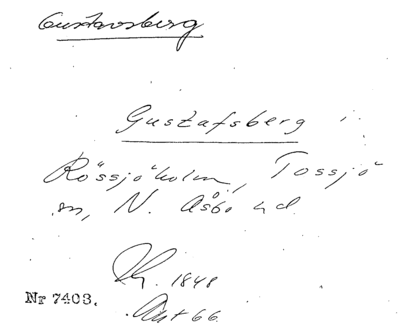 Gustavsberg
Gustafsberg i
Rössjöholm, Tossjö
sn, N. Åsbo hd
1848
66
Nr 7403.